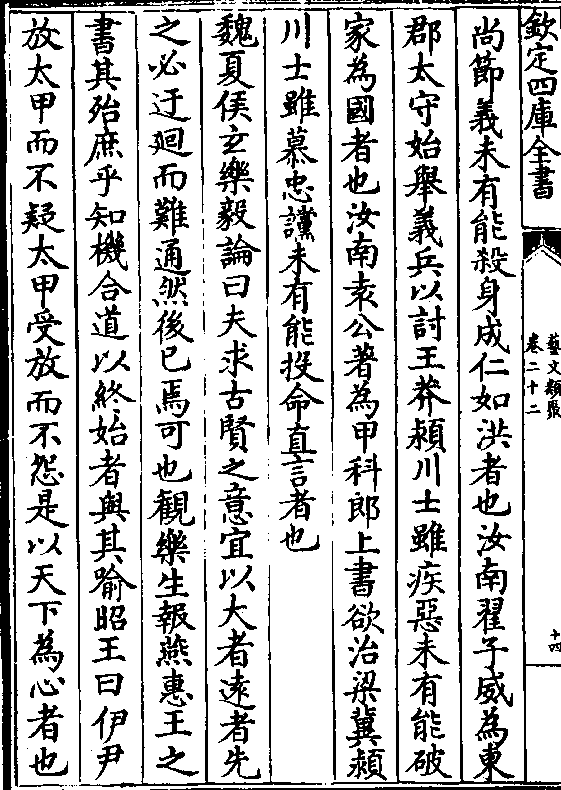 欽定四庫全書
藝文類聚
卷二十二
十四
尚節義未有能殺身成仁如洪者也汝南翟子威為東
郡太守始舉義兵以討王莽潁川士雖疾惡未有能破
家為國者也汝南袁公著為甲科郎上書欲治梁冀潁
川士雖慕忠讜未有能投命直言者也
魏夏侯玄樂毅論曰夫求古賢之意宜以大者逺者先
之必迂廻而難通然後已焉可也觀樂生報燕惠王之
書其殆庶乎知機合道以終始者與其喻昭王曰伊尹
放太甲而不疑太甲受放而不怨是以天下為心者也